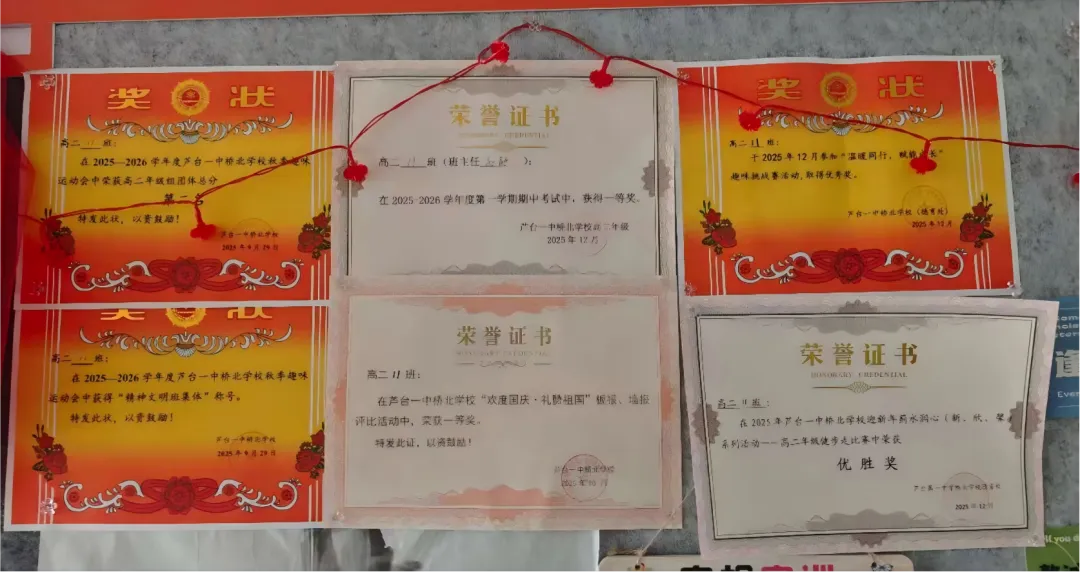 奖 状
高二 11 班:
在 2025—2026 学年度芦台一中桥北学校秋季趣味
运动会中荣获高二年级组团体总分
第一
特发此状，以资鼓励！
芦台一中桥北学校
2025 年 9 月 29 日
荣誉证书
高二 11 班（班主任 ）：
在 2025-2026 学年度第一学期期中考试中，获得一等奖。
芦台一中桥北学校高二年级
2025 年 12 月
奖 状
高二 11 班：
于 2025 年 12 月参加“温暖同行，赋能成长”
趣味挑战赛活动，取得优秀奖。
芦台一中桥北学校（德育处）
2025 年 12 月
奖 状
高二 11 班：
在 2025—2026 学年度芦台一中桥北学校秋季趣味
运动会中获得“精神文明班集体”称号。
特发此状，以资鼓励！
芦台一中桥北学校
2025 年 9 月 29 日
荣誉证书
高二 11 班：
在芦台一中桥北学校“欢度国庆·礼赞祖国”板报、墙报
评比活动中，荣获一等奖。
特发此证，以资鼓励！
芦台一中桥北学校
2025 年 10 月
荣誉证书
HONORARY CREDENTIAL
高二 11 班：
在 2025 年芦台一中桥北学校迎新年蓟水润心（新、欣、
系列活动——高二年级徒步走比赛中荣获
优胜奖
2025 年 12 月